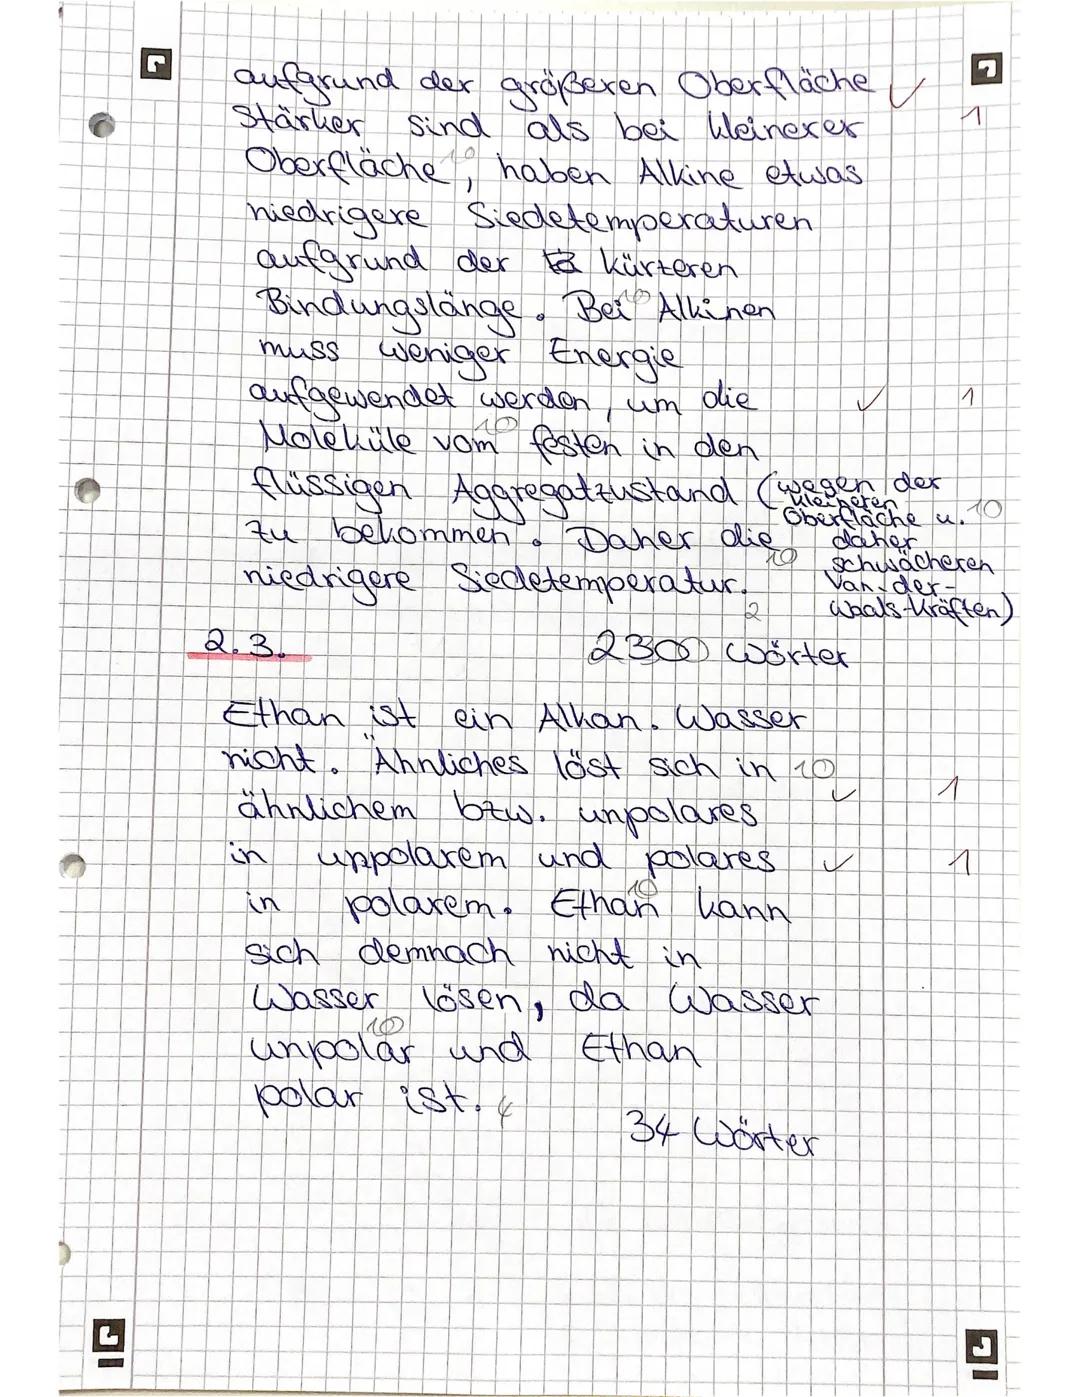 aufgrund der größeren Oberfläche ✓ 1
stärker sind als bei kleinerer
Oberfläche 10, haben Alkine etwas
niedrigere Siedetemperaturen
aufgrund der kürzeren
Bindungslänge. Bei 10 Alkinen
muss weniger Energie
aufgewendet werden, um die ✓ 1
Moleküle vom 10 festen in den
flüssigen Aggregatzustand (wegen der
kleineren
Oberfläche u. 10
zu bekommen. Daher die daher
10 schwächeren
niedrigere Siedetemperatur. Van-der-
2 Waals-Kräften)
2.3. 230 Wörter
Ethan ist ein Alkan. Wasser
nicht. "Ähnliches löst sich in 10
ähnlichem bzw. unpolares ✓ 1
in uppolarem und polares ✓ 1
in polarem. Ethan 10 kann
sich demnach nicht in
Wasser lösen, da Wasser
unpolar 10 und Ethan
polar ist. 4
34 Wörter